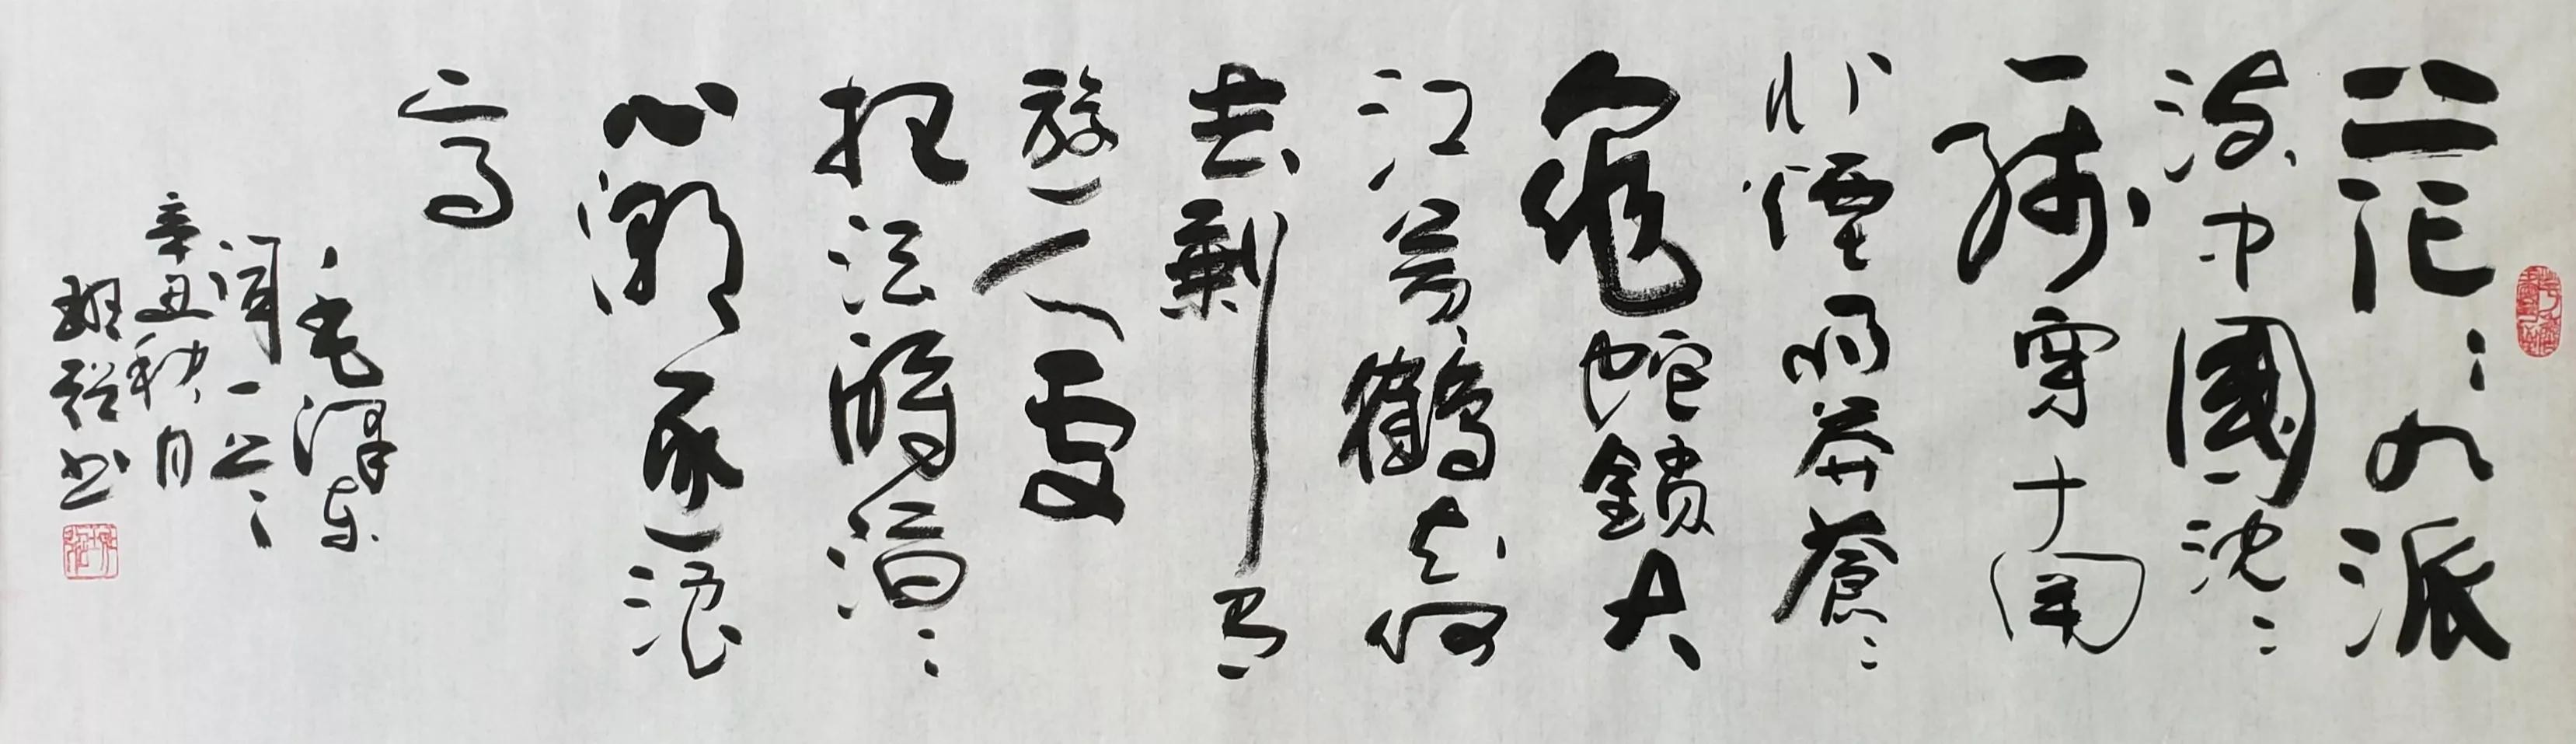 茫〻九派
流中國沈〻
一線穿南
北煙雨莽蒼〻
龜蛇鎖大
江黃鶴知何
去剩有
遊人處
把酒酹滔〻
心潮逐浪
高
毛澤东
词一首
辛丑秋月
书